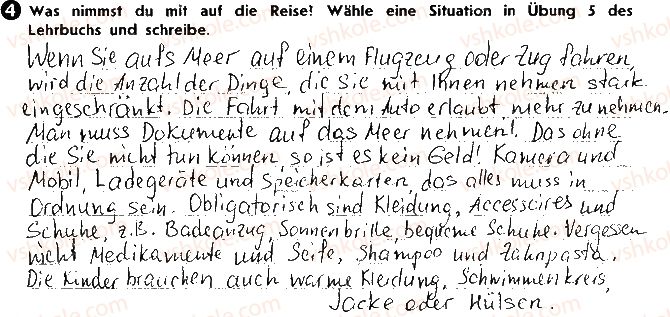 4 Was nimmst du mit auf die Reise? Wähle eine Situation in Übung 5 des
Lehrbuchs und schreibe.
Wenn Sie aufs Meer auf einem Flugzeug oder Zug fahren,
wird die Anzahl der Dinge, die Sie mit Ihnen nehmen stark
eingeschränkt. Die Fahrt mit dem Auto erlaubt mehr zu nehmen.
Man muss Dokumente auf das Meer nehmen! Das ohne
die Sie nicht tun können, so ist es kein Geld! Kamera und
Mobil, Ladegeräte und Speicherkarten, das alles muss in
Ordnung sein. Obligatorisch sind Kleidung, Accessoires und
Schuhe, z.B. Badeanzug, Sonnenbrille, bequeme Schuhe. Vergessen
nicht Medikamente und Seife, Shampoo und Zahnpasta.
Die Kinder brauchen auch warme Kleidung, Schwimmenkreis,
Jacke oder Hülsen.